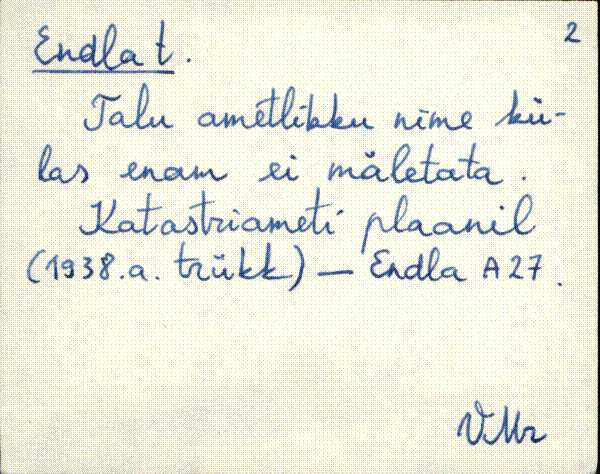 2
Endla t.
Talu ametlikku nime kü-
las enam ei mäletata.
Katastriameti plaanil
(1938.a. trükk) — Endla A27.
VMr